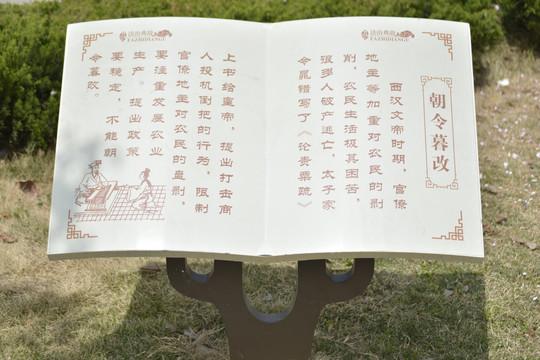 法治典故
FAZHIDIANGU
朝令暮改
西汉文帝时期，官僚
地主等加重对农民的剥
削，农民生活极其困苦，
很多人破产逃亡。太子家
令晁错写了《论贵粟疏》
法治典故
FAZHIDIANGU
上书给皇帝，提出打击商
人投机倒把的行为，限制
官僚地主对农民的盘剥，
要注重发展农业
生产。提出政策
要稳定，不能朝
令暮改。